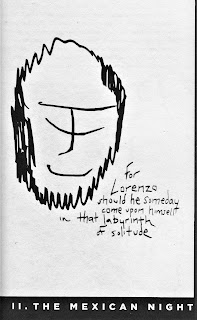 For
Lorenzo
should he someday
come upon himself
in that labyrinth
of solitude
II. THE MEXICAN NIGHT